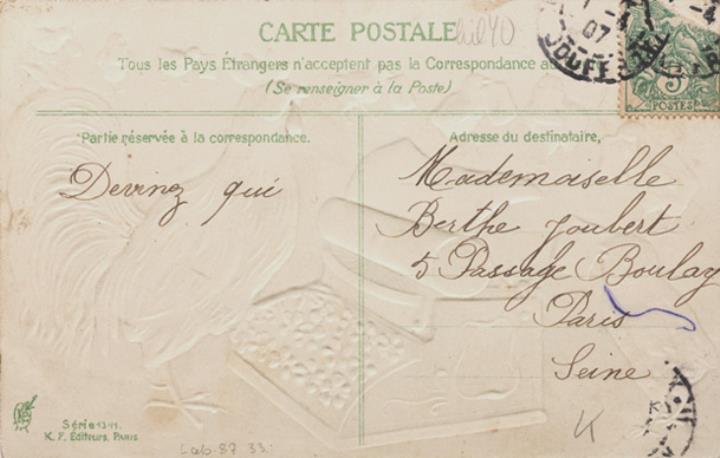 CARTE POSTALE
Tous les Pays Étrangers n'acceptent pas la Correspondance au
(Se renseigner à la Poste)
Partie réservée à la correspondance.
Devinez qui
Adresse du destinataire,
Mademoiselle
Berthe Joubert
5 Passage Boulay
Paris
Seine
5
POSTES
-4
07
JOUFF
K
Série 1311
K. F. Éditeurs, PARIS
Lab. 87 33.